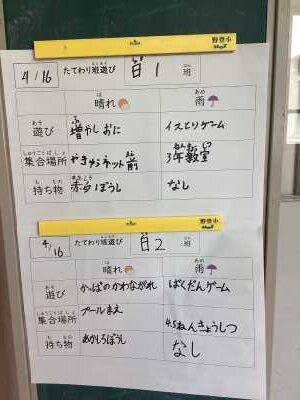 野登小
4/16 たてわり班遊び 白1 班
晴れ 雨
遊び 増やしおに イスとりゲーム
集合場所 やきゅうネット前 3年教室
持ち物 赤白ぼうし なし
野登小
4/16 たてわり班遊び 白2 班
晴れ 雨
遊び かっぱのかわながれ ばくだんゲーム
集合場所 プールまえ 4.5ねんきょうしつ
持ち物 あかしろぼうし なし